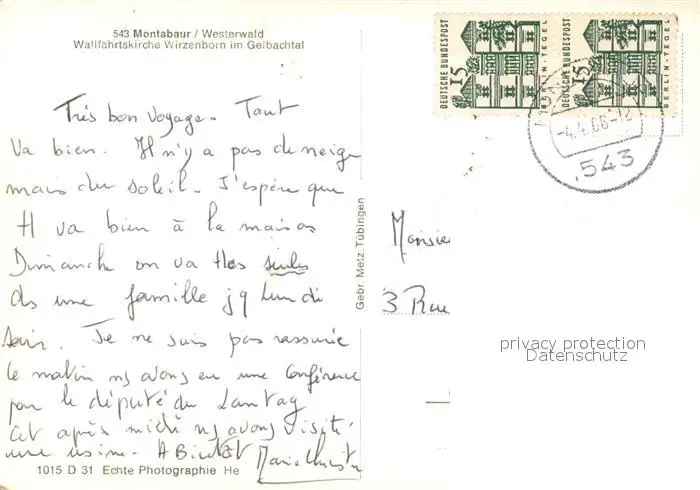 543 Montabaur / Westerwald
Wallfahrtskirche Wirzenborn im Gelbachtal
DEUTSCHE BUNDESPOST
15
BERLIN-TEGEL
DEUTSCHE BUNDESPOST
15
BERLIN-TEGEL
-4.4.66-12
543
Très bon voyage. Tout
va bien. Il n'y a pas de neige
mais du soleil. J'espère que
tt va bien à la maison
Dimanche on va tes seules
ds une famille jq Lundi
soir. Je ne suis pas rassurée
le matin ns avons eu une conférence
par le député du Lantag
Cet après midi ns avons visité
une usine. A Bientôt
Gebr. Metz, Tübingen
Monsie
3 Rue
privacy protection
Datenschutz
1015 D 31 Echte Photographie He